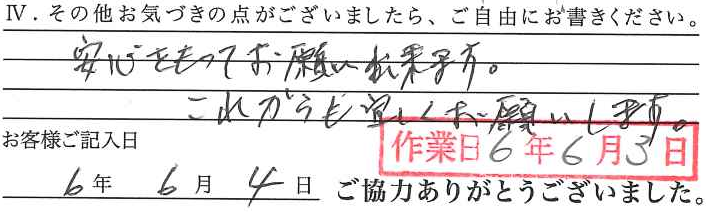 Ⅳ．その他お気づきの点がございましたら、ご自由にお書きください。
安心をもってお願い出来ます。
これからも宜しくお願いします。
お客様ご記入日
作業日6年6月3日
6年 6月 4日 ご協力ありがとうございました。